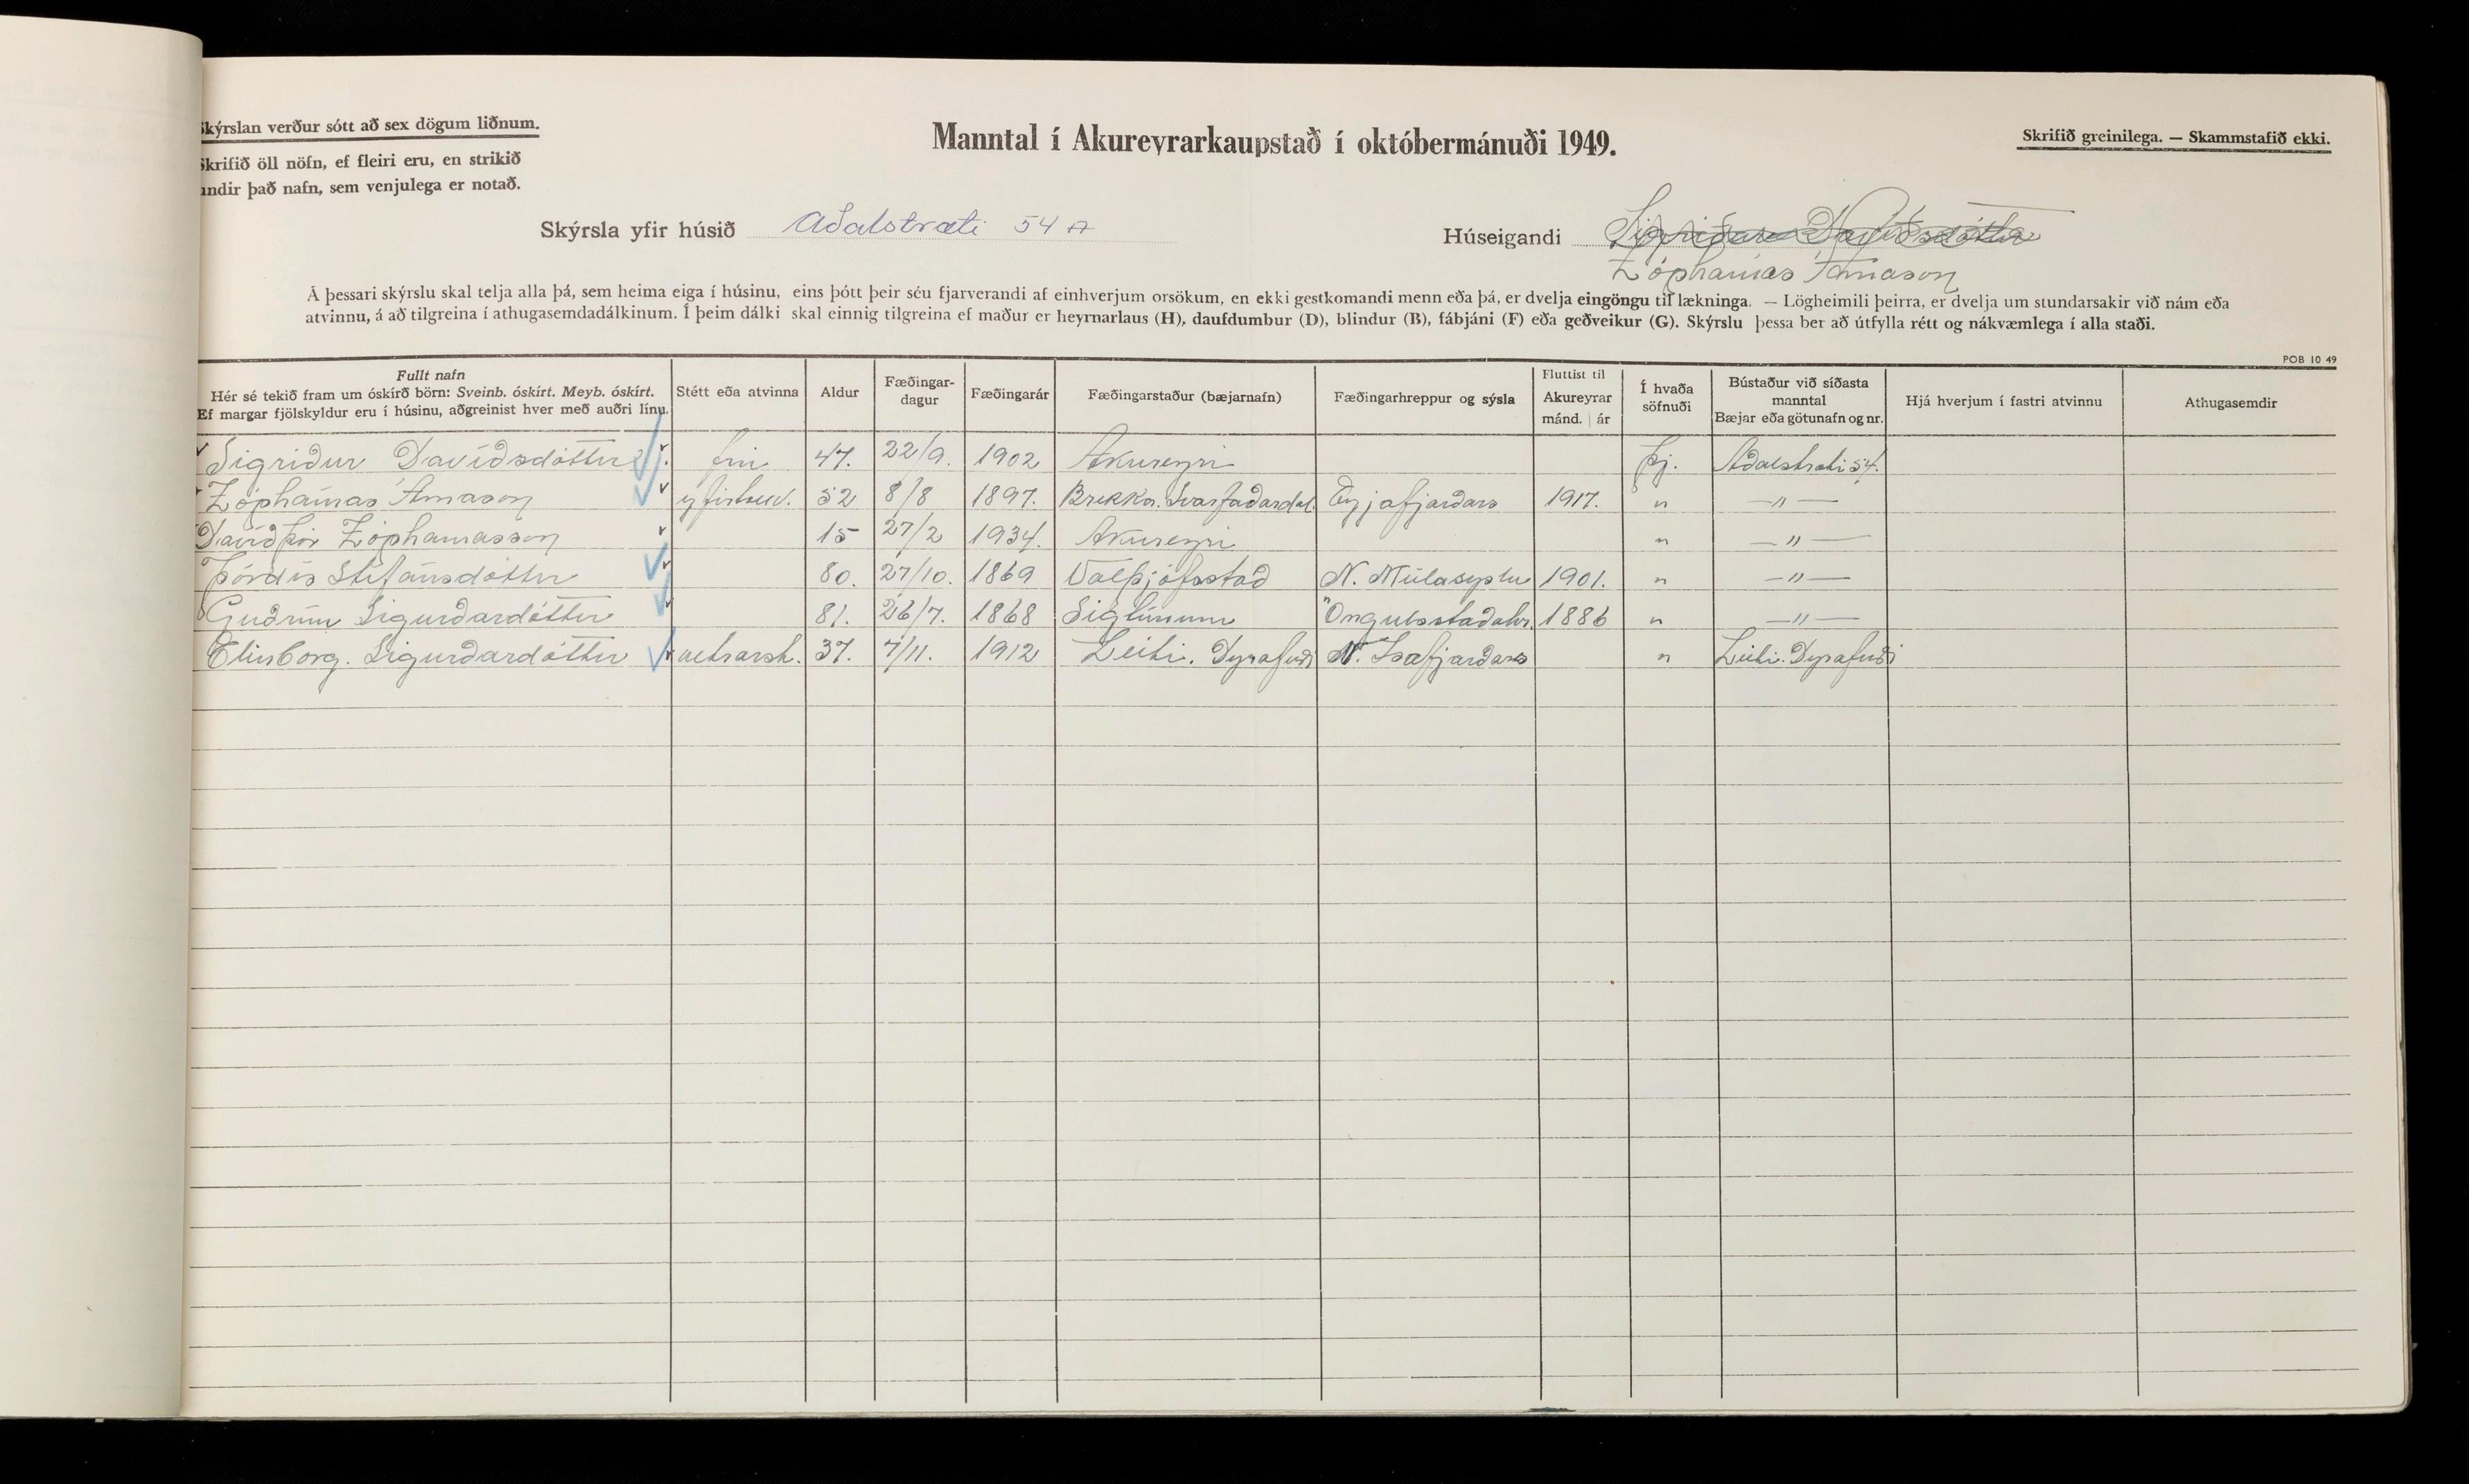 Skýrslan verður sótt að sex dögum liðnum.
Skrifið öll nöfn, ef fleiri eru, en strikið
undir það nafn, sem venjulega er notað.
Manntal í Akureyrarkaupstað í októbermánuði 1949.
Skrifið greinilega. — Skammstafið ekki.
Skýrsla yfir húsið Aðalstræti 54 A
Húseigandi Sigríður Davíðsdóttir
Zóphanías Árnason
Á þessari skýrslu skal telja alla þá, sem heima eiga í húsinu, eins þótt þeir séu fjarverandi af einhverjum orsökum, en ekki gestkomandi menn eða þá, er dvelja eingöngu til lækninga. — Lögheimili þeirra, er dvelja um stundarsakir við nám eða
atvinnu, á að tilgreina í athugasemdadálkinum. Í þeim dálki skal einnig tilgreina ef maður er heyrnarlaus (H), daufdumbur (D), blindur (B), fábjáni (F) eða geðveikur (G). Skýrslu þessa ber að útfylla rétt og nákvæmlega í alla staði.
POB 10 49
Fullt nafn Hér sé tekið fram um óskírð börn: Sveinb. óskírt. Meyb. óskírt. Ef margar fjölskyldur eru í húsinu, aðgreinist hver með auðri línu. Stétt eða atvinna Aldur Fæðingar-dagur Fæðingarár Fæðingarstaður (bæjarnafn) Fæðingarhreppur og sýsla Fluttist til Akureyrar mánd. | ár Í hvaða söfnuði Bústaður við síðasta manntal Bæjar eða götunafn og nr. Hjá hverjum í fastri atvinnu Athugasemdir
Sigríður Davíðsdóttir frú 47. 22/9. 1902 Akureyri Þj. Aðalstræti 54.
Zóphanías Árnason yfirtollv. 52 8/8 1897. Brekka. Svarfaðardal. Eyjafjarðars 1917. " —"—
Davíð Þór Zóphaníasson 15 27/2 1934. Akureyri " —"—
Þórdís Stefánsdóttir 80. 27/10. 1869 Valþjófsstað N. Múlasýslu 1901. " —"—
Guðrún Sigurðardóttir 81. 26/7. 1868 Sigtúnum Öngulsstaðahr. 1886 " —"—
Elinborg. Sigurðardóttir vetrarst. 37. 7/11. 1912 Leiti. Dýrafirði N. Ísafjarðars " Leiti. Dýrafirði